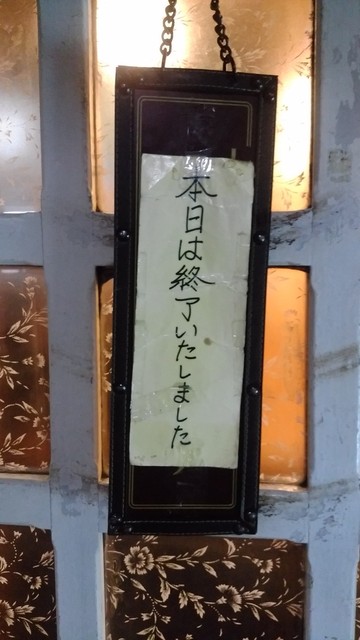 本日は終了いたしました